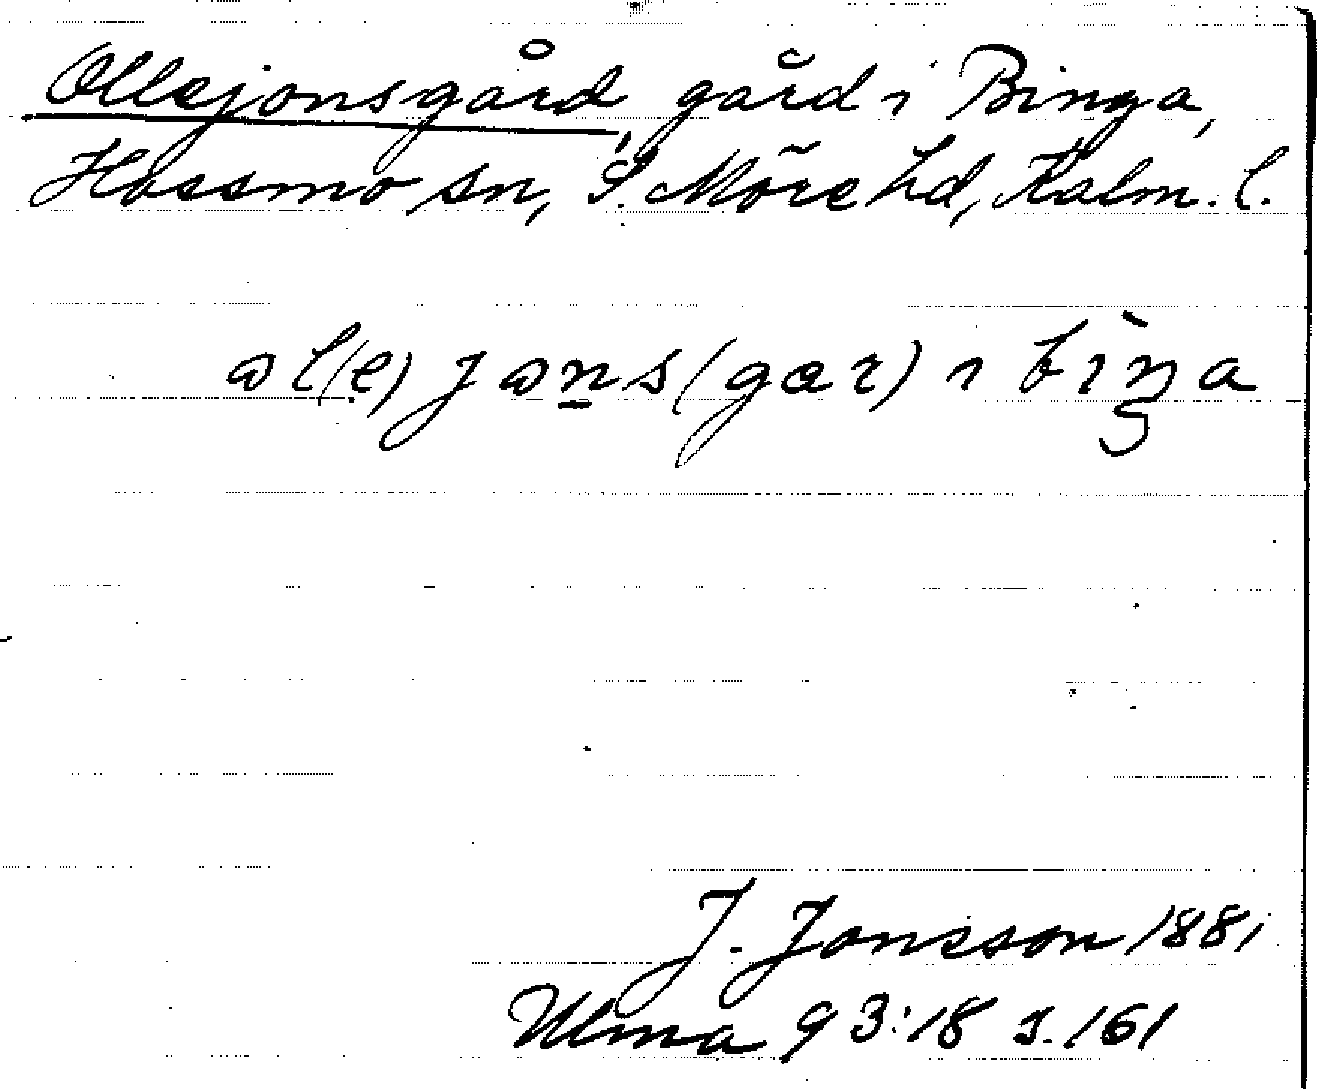 Ollejonsgård, gård i Binga,
Hossmo sn, S. Möre hd, Kalm. l.
al(e) jans(gær) ı bìŋa
J. Jonsson 1881
Ulma 93:18 s. 161